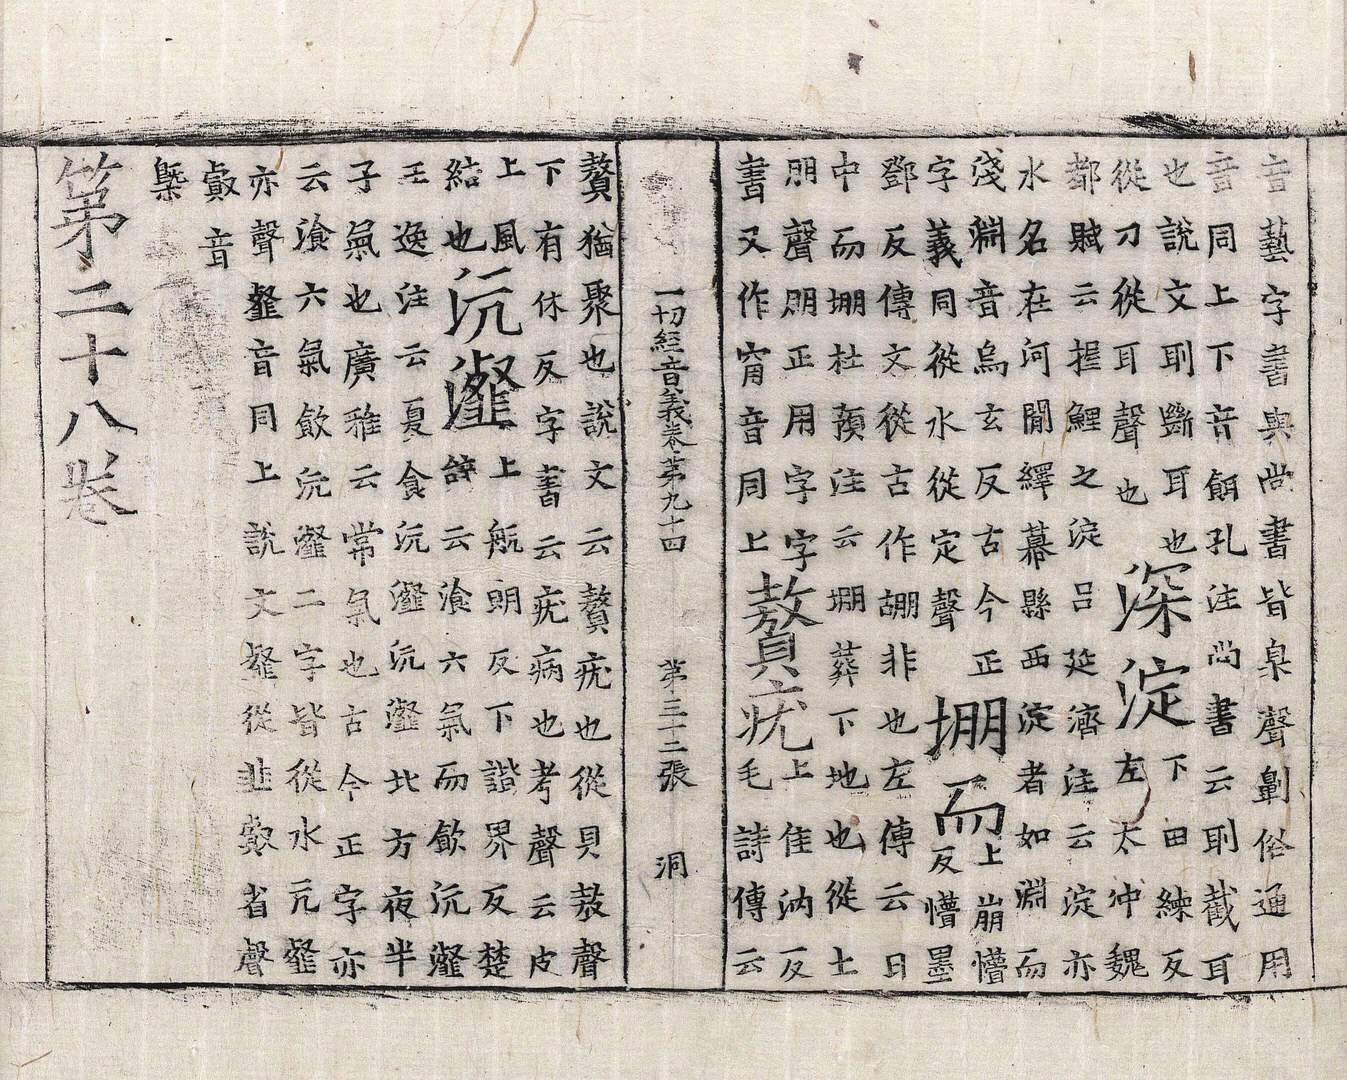 音藝字書與尚書皆臬聲劓俗通用
音同上下音餌孔注尚書云刵截耳
也說文刵斷耳也
從刀從耳聲也
深淀
下田練反
左太沖魏
都賦云掘鯉之淀呂延濟注云淀亦
水名在河閒繹幕縣西淀者如淵而
淺淵音烏玄反古今正
字義同從水從定聲
堋而
上崩懵
反懵墨
鄧反傳文從古作非也左傳云日
中而堋杜預注云堋葬下地也從土
朋聲朋正用字字
書又作甯音同上
贅疣
上隹汭反
毛詩傳云
一切經音義卷第九十四 第三十二張 洞
贅猶聚也說文云贅疣也從貝敖聲
下有休反字書云疣病也考聲云皮
上風
結也
沆瀣
上航朗反下諧界反楚
辭云飡六氣而飲沆瀣
王逸注云夏食沆瀣沆瀣北方夜半
子氣也廣雅云常氣也古今正字亦
云飡六氣飲沆瀣二字皆從水亢𩐁
亦聲𩐁音同上說文𩐁從韭㕡省聲
㕡音
槩
第二十八卷